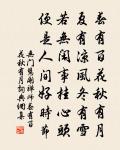 春有百花秋有月
夏有凉風冬有雪
若無閑事挂心頭
便是人间好時節
無門慧開禪師春有百
花秋有月詞典網集